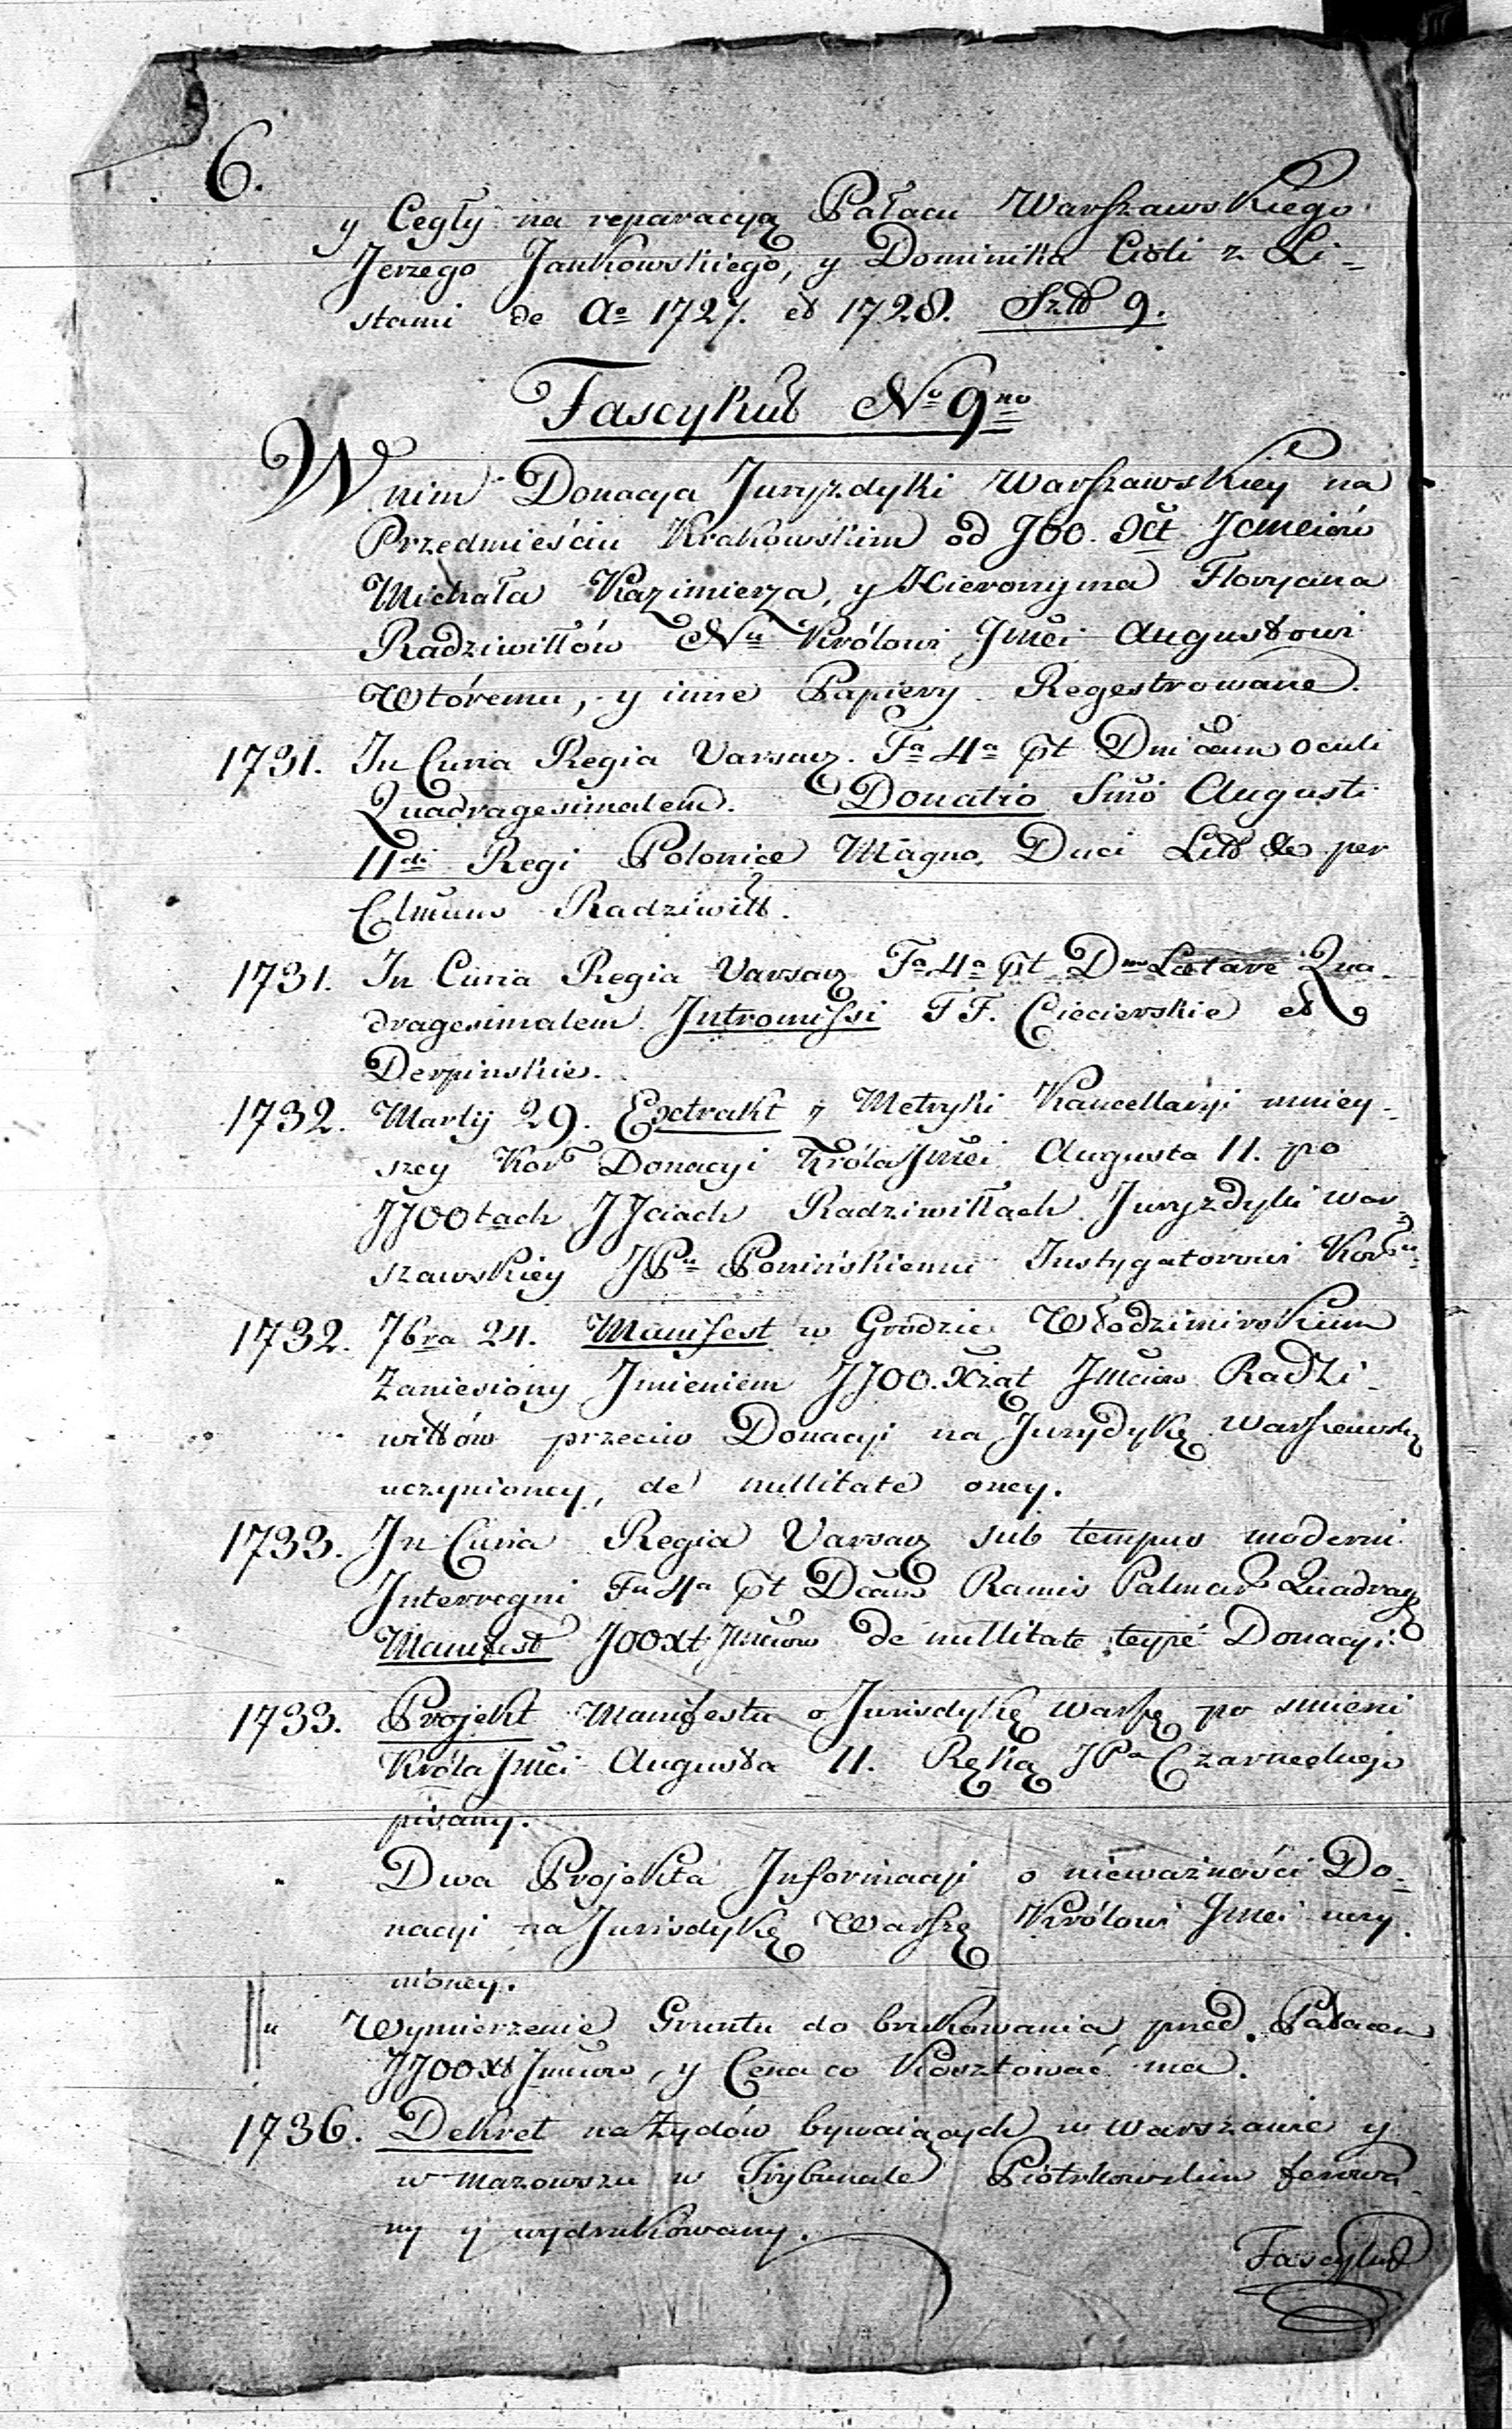 6.
y Cegły na reparacyą Pałacu Warszawskiego
Jerzego Jankowskiego, y Dominika z Li-
stami de Ao 1727. et 1728. Szt 9.
Fascykuł No 9no
W nim Donacya Juryzdyki Warszawskiey na
Przedmieściu Krakowskim od JOO. Xct Jchmciów
Michała Kazimierza, y Hieronyma Floryana
Radziwiłłów Nu Królowi Jmci Augustowi
Wtóremu, y inne Papiery Regestrowane.
1731. In Curia Regia Varsav. Fa 4a pt Dnicam Oculi
Quadragesimalem. Donatio Smo Augusti
IIdi Regi Poloniae Magno Duci Litt &c per
Radziwiłł.
1731. In Curia Regia Varsav Fa 4a pt Dm Laetare Qua-
dragesimalem. Intromissi FF. Ciecierskie et
Derpinskie.
1732. Martij 29. Extrakt z Metryki Kancellaryi mniey-
szey Kor Donacyi Króla Jmci Augusta II. po
JJOOtach JJciach Radziwiłłach Juryzdyki War-
szawskiey JPu Ponińskiemu Instygatorowi Kor
1732. 7bra 24. Manifest w Grodzie Włodzimirskim
Zaniesiony Imieniem JJOO. Xżąt Jmciów Radzi-
wiłłów przeciw Donacyi na Jurydykę Warszawską
uczynioney, de nullitate oney.
1733. In Curia Regia Varsav sub tempus moderni
Interregni Fa 4a pt Dcam Ramis Palmar Quadrag
Manifest JOOXt Jmciow de nullitate teyże Donacyi.
1733. Projekt Manifestu o Jurisdykę Warszę po smierci
Króla Jmci Augusta II. Ręką JPa Czarneckiego
pisany.
Dwa Projekta Informacyi o nieważności Do-
nacyi na Jurisdykę Warszę Królowi Jmci uczy-
nioney.
" Wymierzenie Gruntu do brukowania przed Pałacem
JJOOXt Jmciow, y Cena co Kosztować ma.
1736. Dekret na Żydów bywaiących w Warszawie y
w Mazowszu w Trybunale Piotrkowskim ferowa-
ny y wydrukowany.
Fascykuł